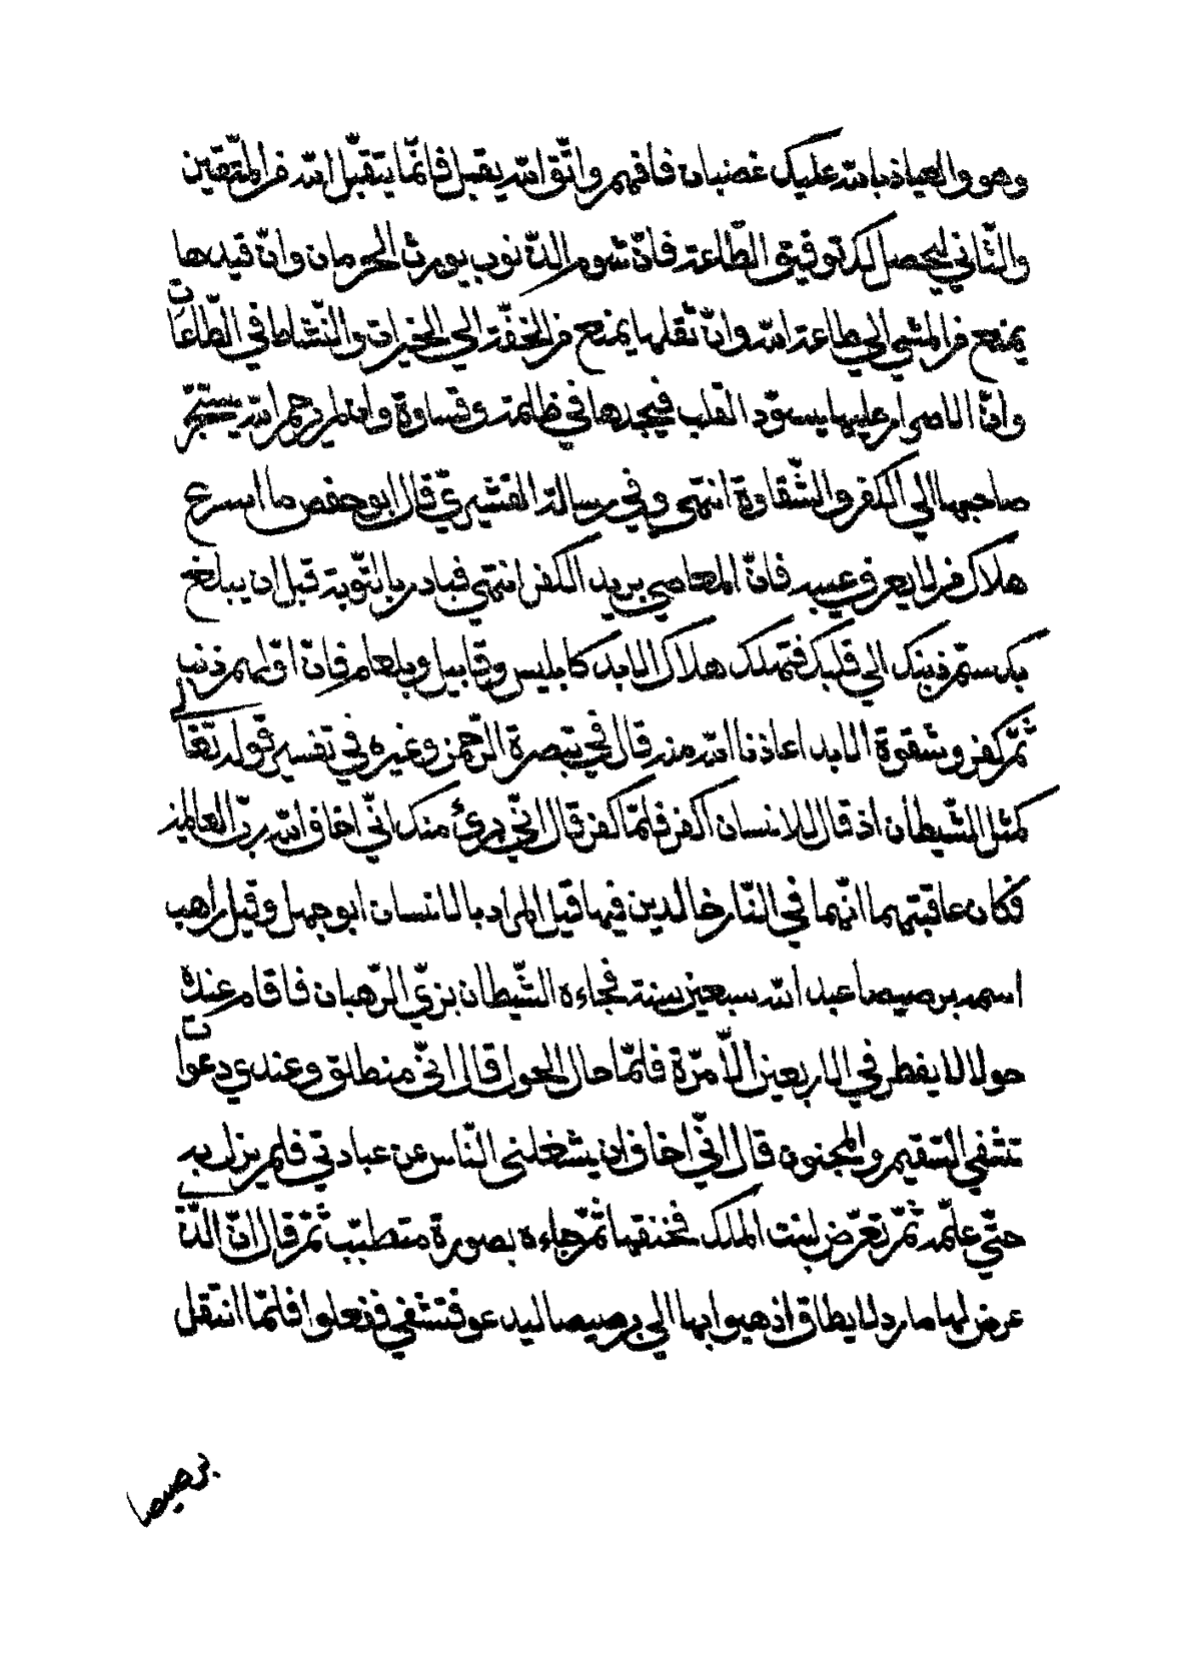 وهو والعياذ بالله عليك غضبان فافهم واتّق الله يقبل فانّما يتقبّل الله من المتّقين
والثّاني ليحصل لك توفيق الطّاعة فانّ شوم الذّنوب يورث الحرمان وانّ قيدها
يمنع من المشي الى طاعة الله وانّ ثقلها يمنع من الخفّة الى الخيرات والنّشاط في الطّاعات
وانّ الاصرار عليها يسوّد القلب فيجدها في ظلمة وقساوة وان لم يرحم الله يستجرّ
صاحبها الي الكفر والشّقاوة انتهى وفي رسالة القشيريّ قال ابو حفص ما اسرع
هلاك من لا يعرف عيبه فانّ المعاصي بريد الكفر انتهي فبادر بالتّوبة قبل ان يبلغ
بك ستم ذنبك الي قلبك فتهلك هلاك الابد كابليس وقابيل وبلعام فانّ اوّلهم ذنب
ثمّ كفر وشقوة الابد اعاذنا الله منه قال في تبصرة الرّحمن وغيره في تفسير قوله تعّالى
كمثل الشّيطان اذ قال للانسان اكفر فلمّا كفر قال انّي بريء منك انّي اخاف الله ربّ العالمين
فكان عاقبتهما انّهما في النّار خالدين فيها قيل المراد بالانسان ابو جهل وقيل راهب
اسمه برصيصا عبد الله سبعين سنة فجاءه الشّيطان بزيّ الرّهبان فاقام عنده
حولا لا يفطر في الاربعين الّا مرّة فلمّا حال الحول قال انّي منطلق وعندي دعوات
تشفي السّقيم والمجنون قال انّي اخاف ان يشغلنى النّاس عن عبادتي فلم يزل به
حتّي علّمه ثمّ تعرّض لبنت الملك فخنقها ثمّ جاءه بصورة متطبّب ثمّ قال انّ الّذي
عرض لها مارد لا يطاق اذهبوا بها الي برصيصا ليدعو فتشفي ففعلوا فلمّا انتقل
برصيصا